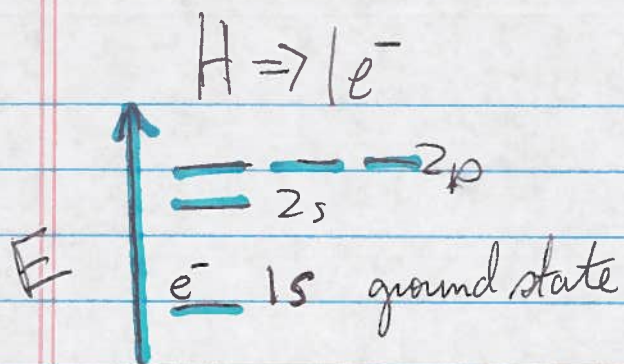 H => 1e⁻
2p
2s
E
e⁻ 1s ground state